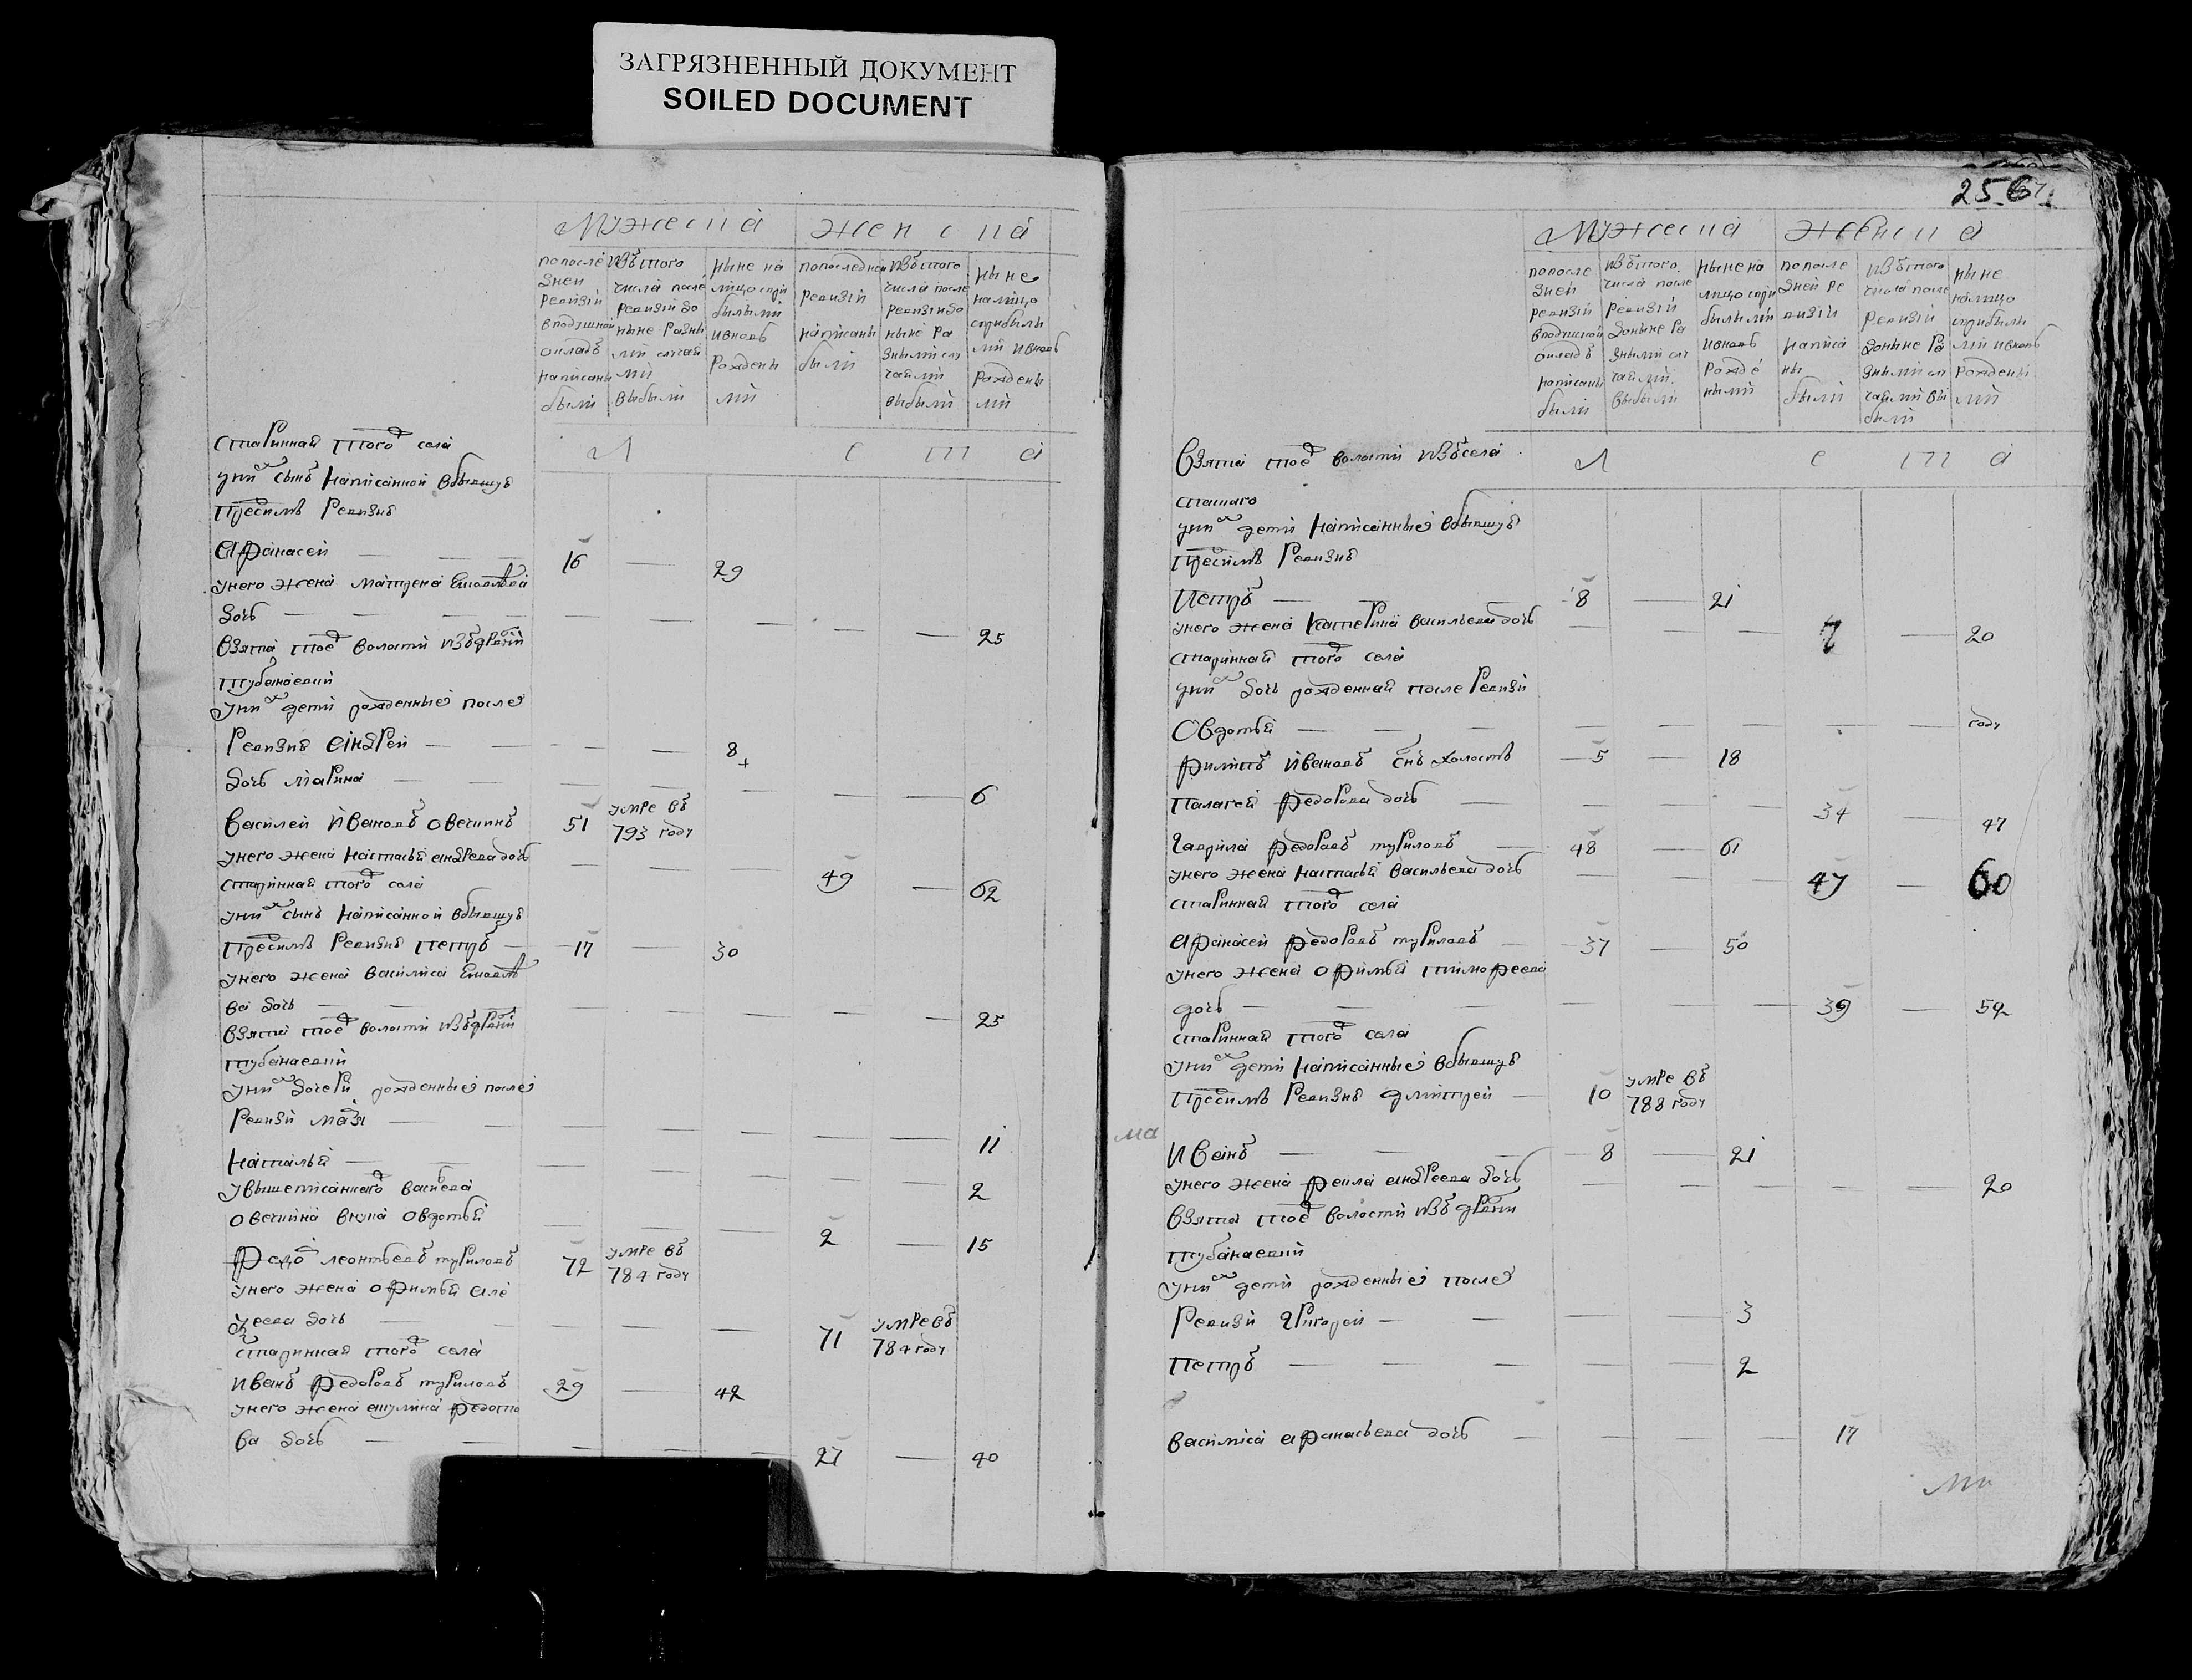 ЗАГРЯЗНЕННЫЙ ДОКУМЕНТ
SOILED DOCUMENT
Мужеска женска
попосле дней ревизий вподушной окладъ написаны были
изътого числа после ревизий до ныне разны ми случаи ми выбыли
ныне на лицо спри былыми ивновь рождены ми
попоследней ревизии написаны были
изътого числа после ревизий до ныне ра зными слу чаи ми выбыли
ныне налицо сприбылы ми ивновь рождены ми
Л е т а
старинная того села
уних сынъ написанной вбывшую
предсимъ ревизию
Афанасей 16 29
унего жена матрена
дочь 25
взята тое волости издеревни
тубанаевки
уних дети рожденные после
ревизии андрей 8
дочь марина 6
василей Ивановъ овечинъ 51 умре въ 793 году
унего жена настасья андреева дочь 49 62
старинная того села
уних сынъ написанной вбывшую
предсимъ ревизию петръ 17 30
унего жена василиса
ва дочь 25
взята тое волости издеревни
тубанаевки
уних дочери рожденные после
ревизи 11
наталья 2
увышеписанного василья
овечина внука овдотья 2 15
Федоръ леонтьевъ туриловъ 72 умре въ 784 году
унего жена офимья але
ева дочь 71 умре въ 784 году
старинная того села
иванъ федоровъ туриловъ 29 42
унего жена акулина федото
ва дочь 27 40
256
Мужеска женска
попосле дней ревизий вподушной окладъ написаны были
изътого числа после ревизий доныне ра зными слу чаи ми выбыли
ныне на лицо спри былыми ивновь рожде ными
попосле дней ре визии написа ны были
изътого числа после ревизий доныне ра зными слу чаи ми вы были
ныне налицо сприбылы ми ивновь рождены ми
взята тое волости изъсела Л е т а
спаскаго
уних дети написанные вбывшую
предсимъ ревизию
Петръ 8 21
унего жена катерина васильева дочь 7 20
старинная того села
уних дочь рожденная после ревизи
Овдотья году
филипъ ивановъ снъ холостъ 5 18
палагея федорова дочь 34 47
гаврила федоровъ туриловъ 48 61
унего жена настасья васильева дочь 47 60
старинная того села
афанасей федоровъ туриловъ 37 50
унего жена офимья тимофеева
дочь 39 52
старинная того села
уних дети написанные вбывшую
предсимъ ревизию дмитрей 10 умре въ 788 году
ма
иванъ 8 21
унего жена фекла андреева дочь 20
взята тое волости изъ деревни
тубанаевки
уних дети рожденные после
ревизи григорей 3
петръ 2
василиса афанасьева дочь 17